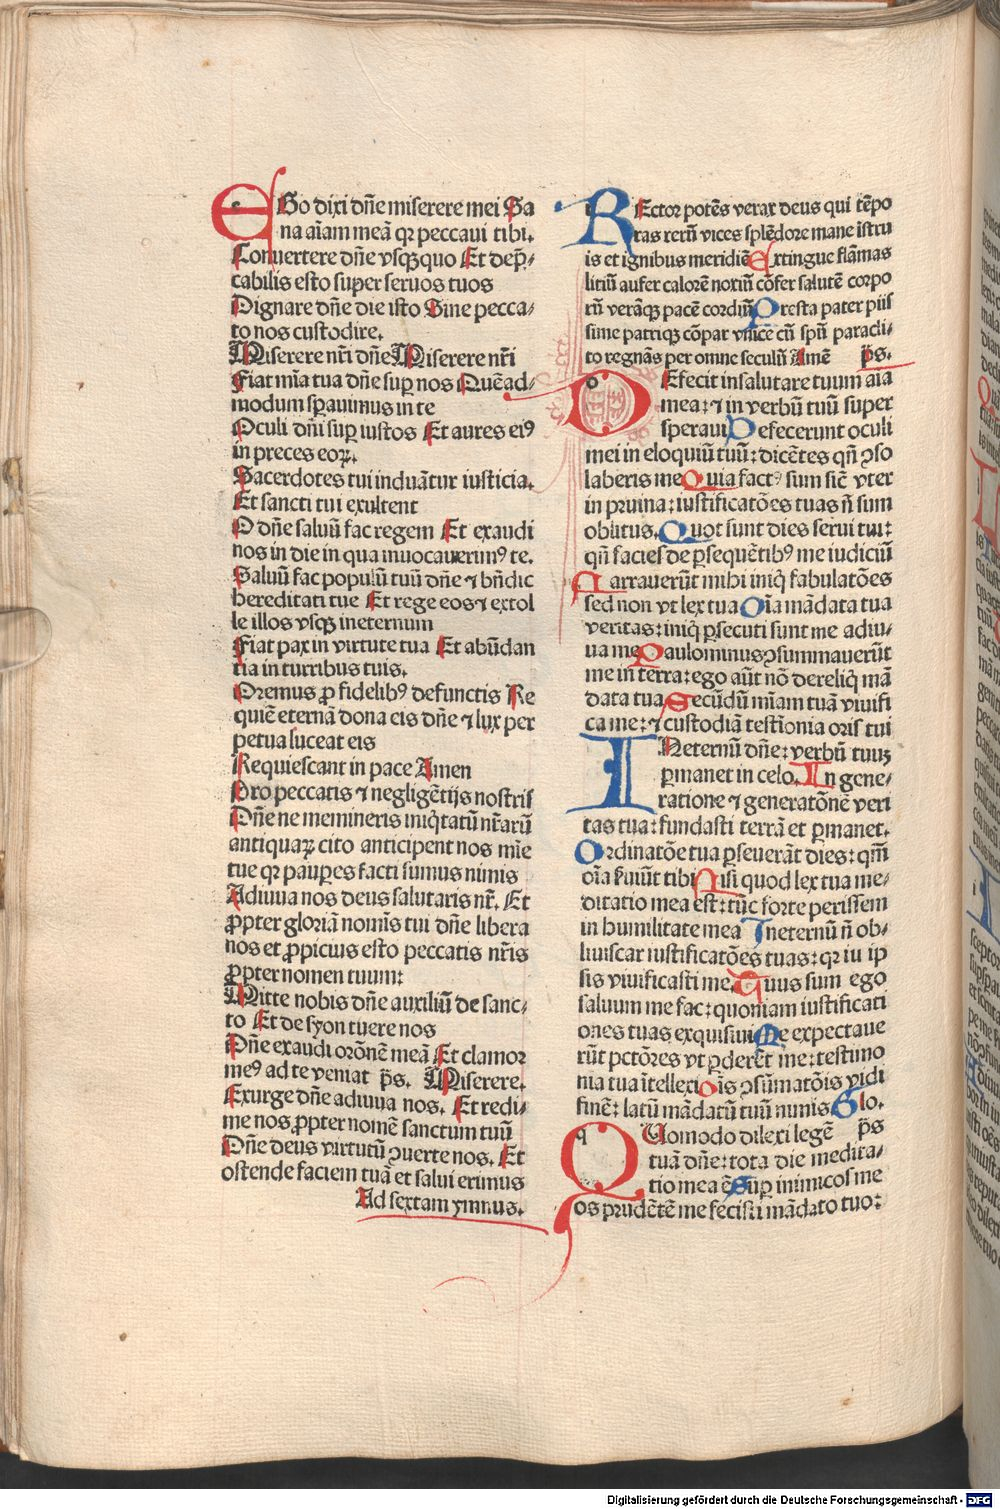 EGo dixi dñe miserere mei Sa
na aĩam meã qꝛ peccaui tibi.
Conuertere dñe vsqꝫquo Et dep̃-
cabilis esto super seruos tuos
Dignare dñe die isto Sine pecca-
to nos custodire.
Miserere nr̃i dñe Miserere nr̃i
Fiat mĩa tua dñe suꝑ nos Quẽad-
modum sꝑauimus in te
Oculi dñi suꝑ iustos Et aures eiꝰ
in preces eoꝝ.
Sacerdotes tui induãtur iusticia.
Et sancti tui exultent
O dñe saluũ fac regem Et exaudi
nos in die in qua inuocauerimꝰ te.
Saluũ fac populũ tuũ dñe ⁊ bñdic
hereditati tue Et rege eos ⁊ extol
le illos vsqꝫ in eternum
Fiat pax in virtute tua Et abũdan
tia in turribus tuis.
Oremus ꝓ fidelibꝰ defunctis Re
quiẽ eternã dona eis dñe ⁊ lux per
petua luceat eis
Requiescant in pace Amen
Pro peccatis ⁊ negligẽtijs nostris
Dñe ne memineris iniq̃tatũ nr̃arũ
antiquaꝝ cito anticipent nos mĩe
tue qꝛ pauꝑes facti sumus nimis
Adiuua nos deus salutaris nr̃. Et
ꝓpter gloriã nomĩs tui dñe libera
nos et ꝓpicius esto peccatis nr̃is
ꝓpter nomen tuum:
Mitte nobis dñe auxiliũ de sanc-
to Et de syon tuere nos
Dñe exaudi orõnẽ meã Et clamor
meꝰ ad te veniat p̃s. Miserere.
Exurge dñe adiuua nos. Et redi-
me nos ꝓpter nomẽ sanctum tuũ
Dñe deus virtutũ ꝯuerte nos. Et
ostende faciem tuã et salui erimus
Ad sextam ymnus.
REctor potẽs verax deus qui tẽpo
ras rerũ vices splẽdore mane ĩstru
is et ignibus meridiẽ Extingue flãmas
litiũ aufer calorẽ noxiũ cõfer salutẽ corpo
rũ verãqꝫ pacẽ cordiũ Presta pater piis
sime patriqꝫ cõpar vnice cũ spũ paracli-
to regnãs per omne seculũ Amẽ p̃s.
DEfecit in salutare tuum aĩa
mea: ⁊ in verbũ tuũ super
speraui Defecerunt oculi
mei in eloquiũ tuũ: dicẽtes qñ ꝯso
laberis me Quia factꝰ sum sic̃ vter
in pruina: iustificatões tuas ñ sum
oblitus. Quot sunt dies serui tui:
qñ facies de ꝑsequẽtibꝰ me iudiciũ
Narrauerũt mihi iniq̃ fabulatões
sed non vt lex tua Oĩa mãdata tua
veritas: iniq̃ ꝑsecuti sunt me adiu-
ua me Paulominus ꝯsummauerũt
me in terra: ego aũt nõ dereliq̃ mã
data tua Secũdũ mĩam tuã viuifi
ca me: ⁊ custodiã testĩonia oris tui
INeternũ dñe: verbũ tuuꝫ
ꝑmanet in celo. In gene-
ratione ⁊ generatõnẽ veri
tas tua: fundasti terrã et ꝑmanet.
Ordinatõe tua ꝑseuerãt dies: qm̃
oĩa ẜuiũt tibi Nisi quod lex tua me-
ditatio mea est: tũc forte perissem
in humilitate mea In eternũ ñ ob-
liuiscar iustificatões tuas: qꝛ iu ip
sis viuificasti me. Tuus sum ego
saluum me fac: quoniam iustificati
ones tuas exquisiui Me expectaue
rũt pctõres vt ꝑderẽt me: testimo
nia tua ĩtellexi Oĩs ꝯsũmatõis vidi
finẽ: latũ mãdatũ tuũ nimis Glo.
QUomodo dilexi legẽ p̃s
tuã dñe: tota die medita-
tio mea ẽ Suꝑ inimicos me
os prudẽtẽ me fecisti mãdato tuo:
Digitalisierung gefördert durch die Deutsche Forschungsgemeinschaft - DFG